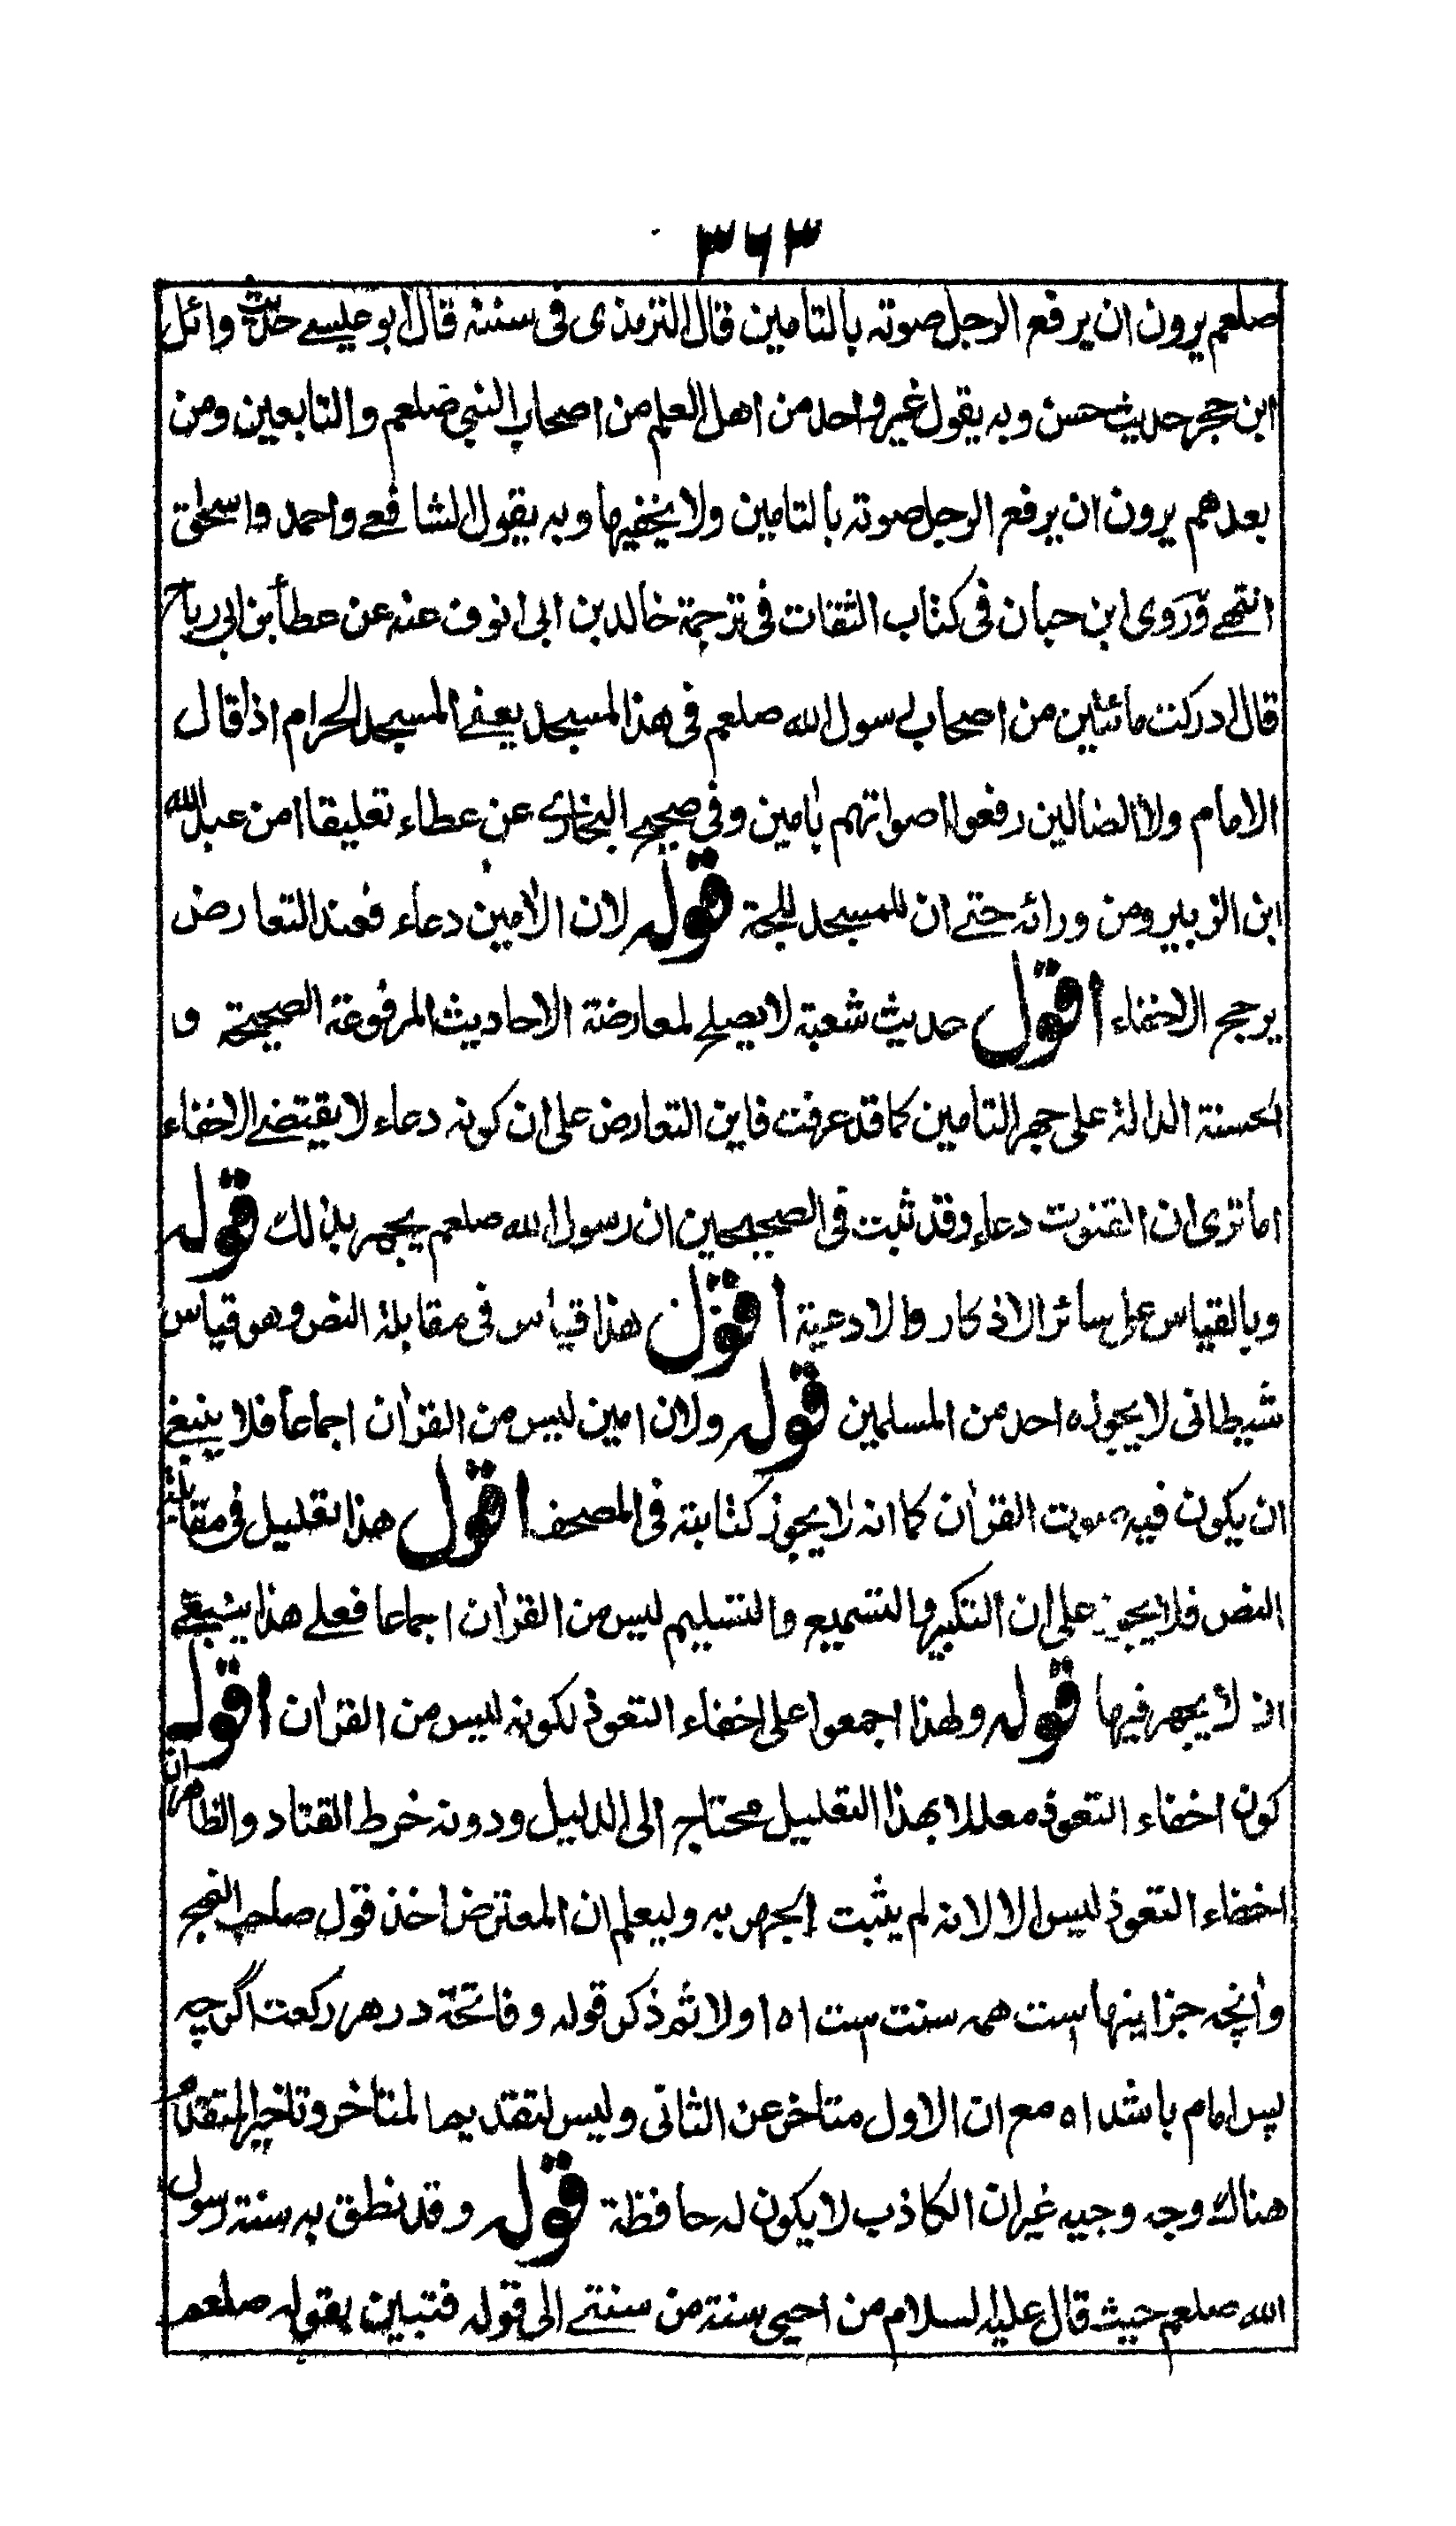 ٣٦٣
صلعم يرون ان يرفع الرجل صوته بالتامين قال الترمذى فى سننه قال ابو عيسے حديث وائل
ابن حجر حديث حسن وبه يقول غير واحد من اهل العلم من اصحاب النبى صلعم والتابعين ومن
بعدهم يرون ان يرفع الرجل صوته بالتامين ولا يخفيها وبه يقول الشافعے واحمد واسحٰق
انتهے وروى ابن حبان فى كتاب الثقات فى ترجمة خالد بن ابى انوف عنه عن عطأ بن ابى رباح
قال ادركت مائتين من اصحاب رسول الله صلعم فى هذا المسجد يعنے المسجد الحرام اذا قال
الامام ولا الضالين رفعوا اصواتهم بٰامين وفى صحيح البخارى عن عطاء تعليقا امن عبد الله
ابن الزبير ومن ورائه حتے ان للمسجد للجة قوله لان الاٰمين دعاء فعند التعارض
يرجح الاخفاء اقول حديث شعبة لا يصلح لمعارضة الاحاديث المرفوعة الصحيحة و
الحسنة الدالة على جهر التامين كما قد عرفت فاين التعارض على ان كونه دعاء لا يقتضے الاخفاء
اما ترى ان القنوت دعاء وقد ثبت فى الصحيحين ان رسول الله صلعم يجهر بذلك قوله
وبالقياس على سائر الاذكار والادعية اقول هذا قياس فى مقابلة النص وهو قياس
شيطانى لا يجوزه احد من المسلمين قوله ولان امين ليس من القرٰان اجماعا فلا ينبغے
ان يكون فيه صوت القرٰان كما انه لا يجوز كتابته فى المصحف اقول هذا تعليل فى مقابلة
النص فلا يجوز على ان التكبير والتسميع والتسليم ليس من القرٰان اجماعا فعلے هذا ينبغے
ان لا يجهر فيها قوله ولهذا اجمعوا على اخفاء التعوذ لكونه ليس من القرٰان اقول
كون اخفاء التعوذ معللا بهذا التعليل محتاج الى الدليل ودونه خرط القتاد والظاهر ان
اخفاء التعوذ ليس الا لانه لم يثبت الجهر به وليعلم ان المعترض اخذ قول صاحب النهج
وآنچه جز اينها است همه سنت است اه اولا ثم ذكر قوله وفاتحة در هر ركعت اگرچه
پس امام باشد اه مع ان الاول متاخر عن الثانى وليس لتقديم المتاخر وتاخير المتقدم
هناك وجه وجيه غير ان الكاذب لا يكون له حافظة قوله وقد نطق به سنة رسول
الله صلعم حيث قال عليه السلام من احيى سنة من سنتے الى قوله فتبين بقوله صلعم